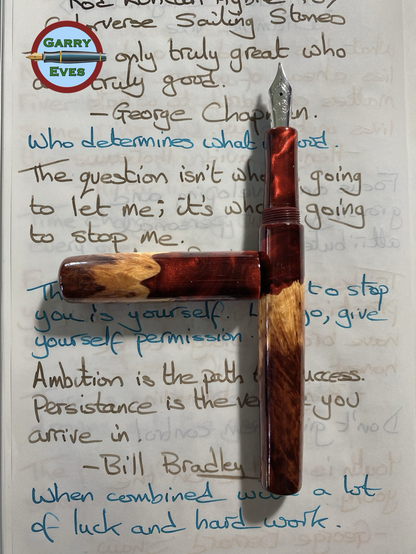 Sailing Stones
GARRY
EVES
only truly great who
truly good.
-George
Who determines what
The question isn't who going
to let me; it's who going
to stop me.
to stop
you is yourself. give
yourself permission.
Ambition is the path success.
Persistance is the you
arrive in.
-Bill Bradley
When combined a lot
of luck and hard work.